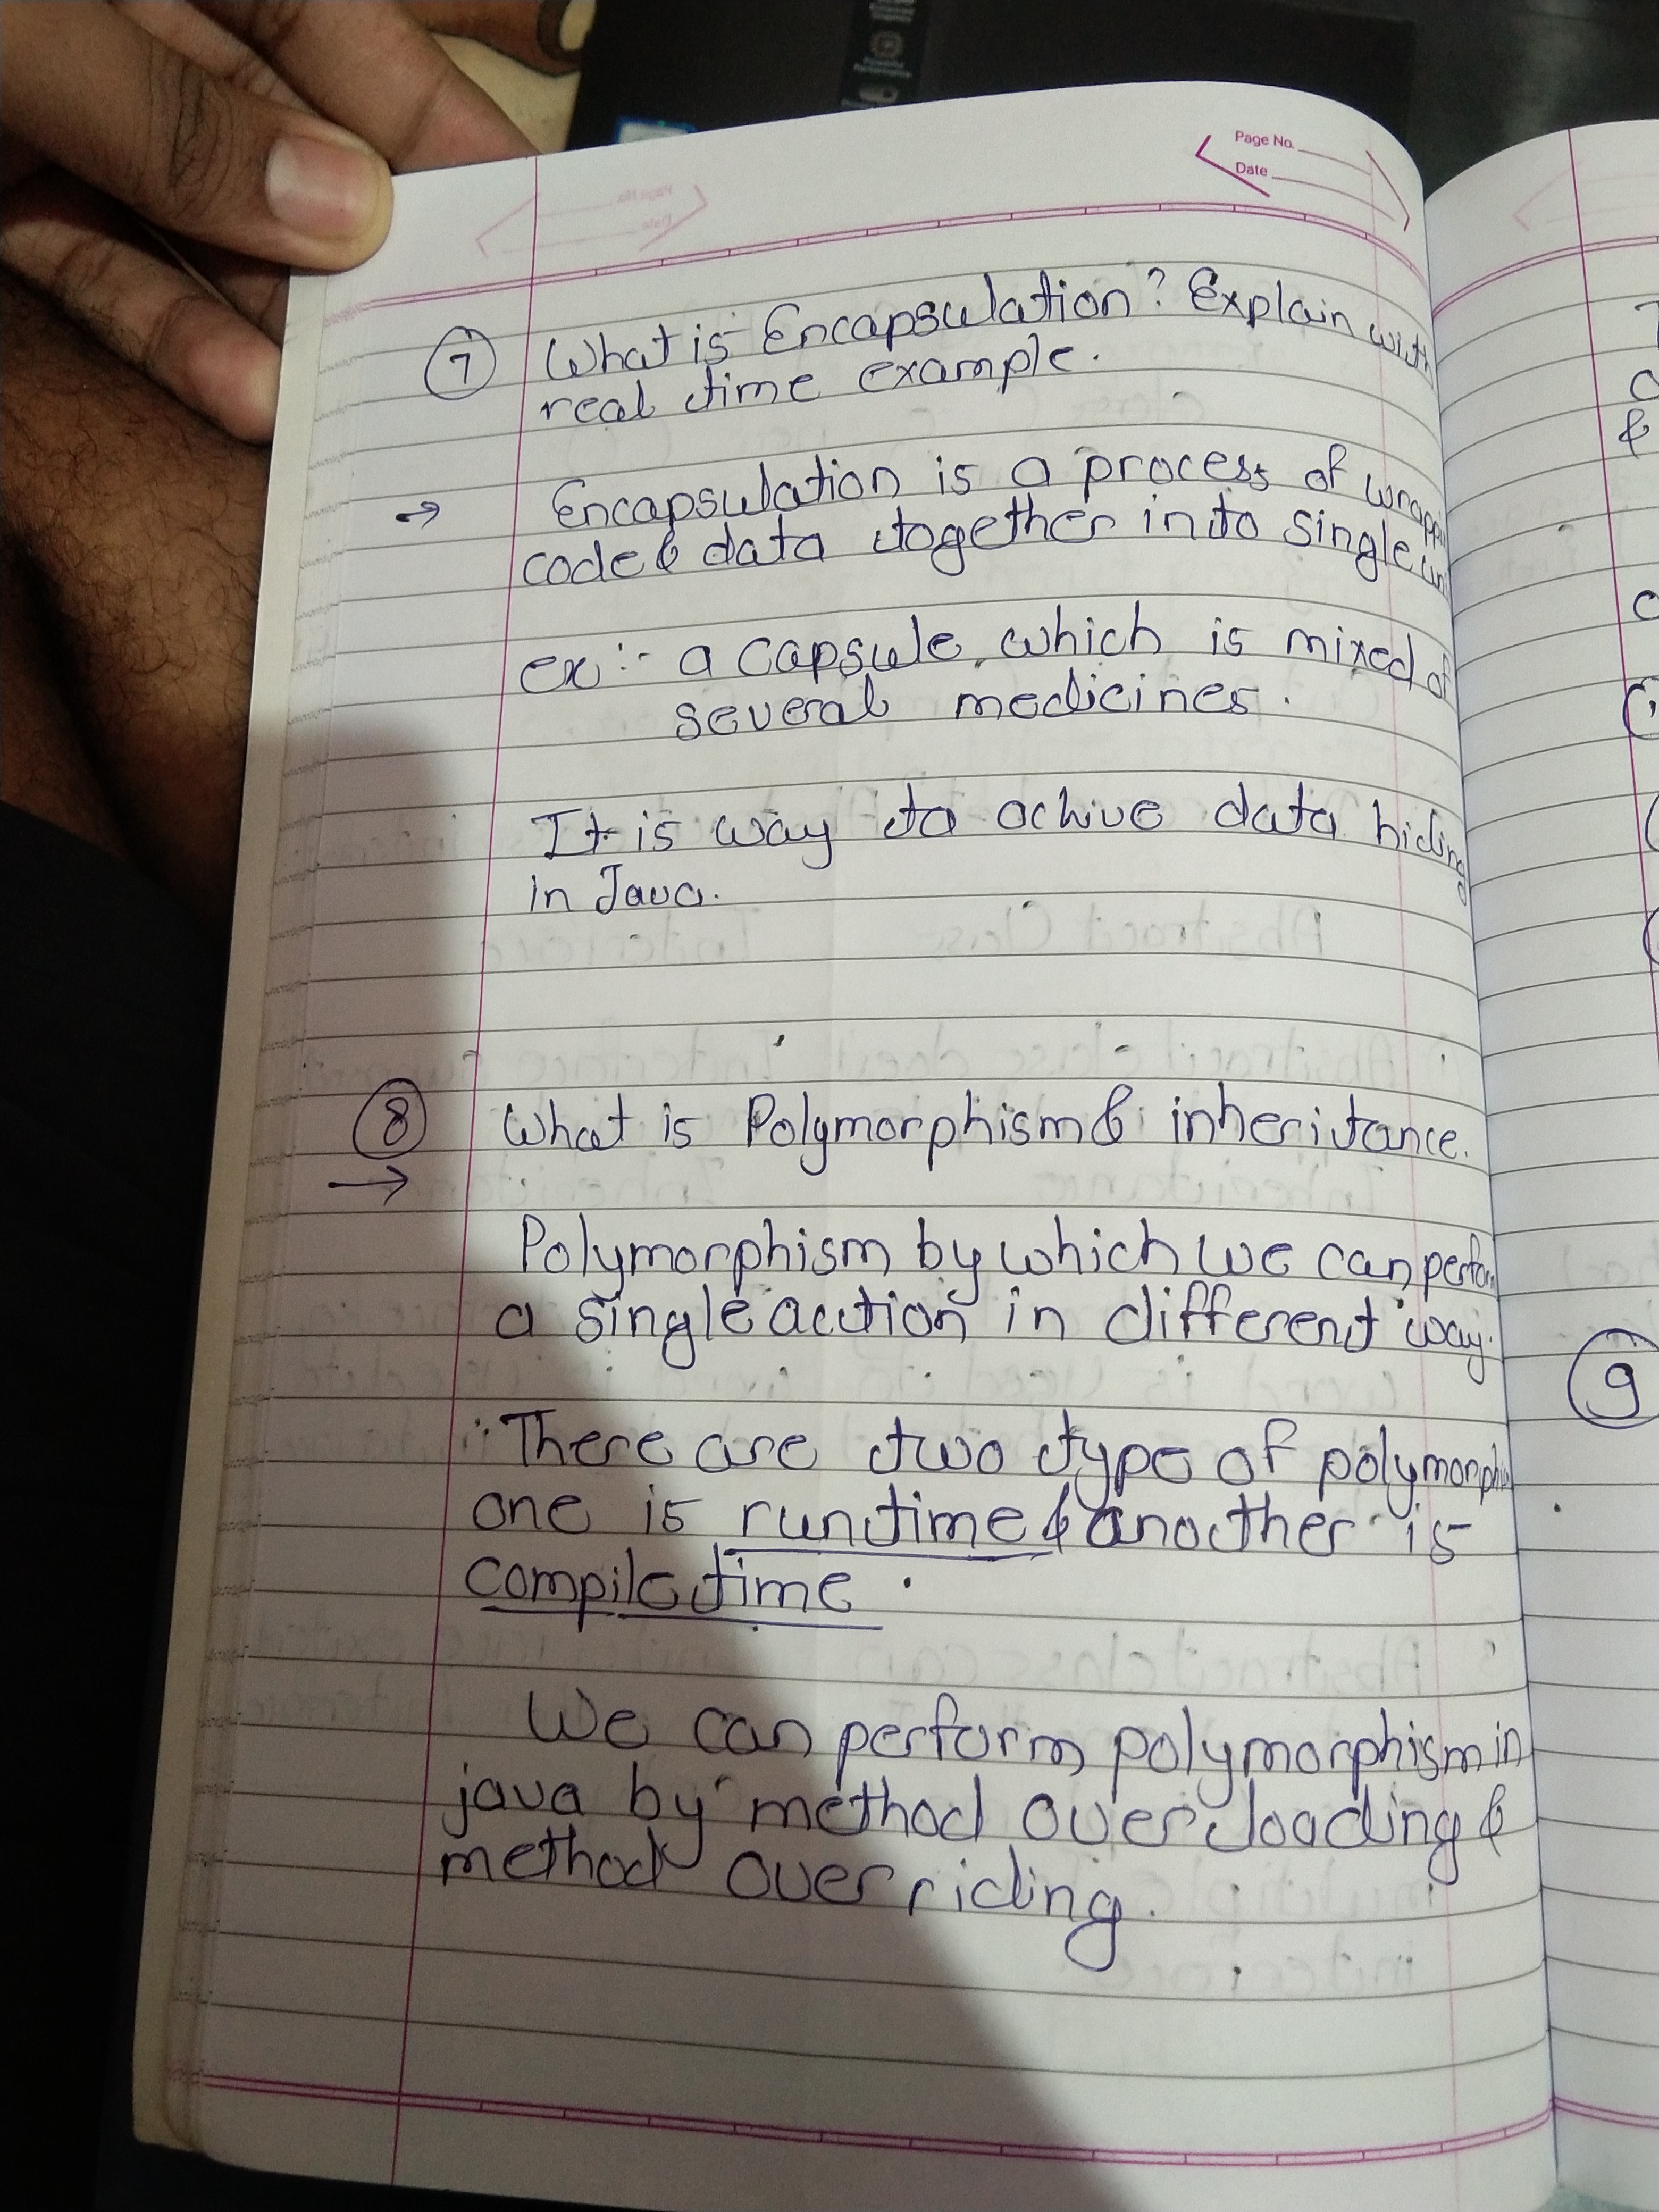 Powerful
Performance
Page No.
Date
7 What is Encapsulation? Explain with
real time example.
→ Encapsulation is a process of
code & data together in to single
ex:- a capsule, which is mixed of
several medicines.
It is way to achive data hiding
in Java.
8 What is Polymorphism & inheritance.
→
Polymorphism by which we can perform
a single action in different way.
There are two type of
one is runtime & another is
compile time.
We can perform polymorphism in
java by method overloading &
method overriding.
&
9